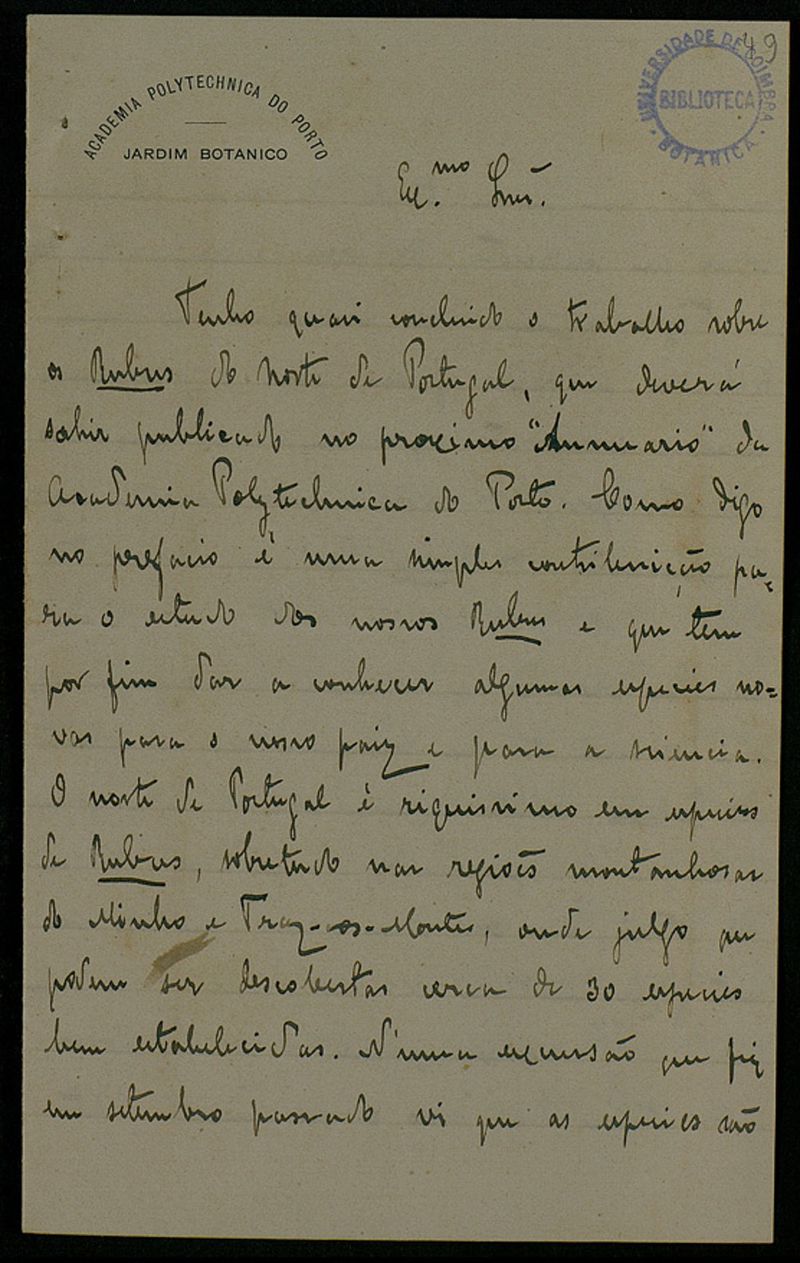 49
UNIVERSIDADE DE COIMBRA
BIBLIOTECA
BOTANICA
ACADEMIA POLYTECHNICA DO PORTO
JARDIM BOTANICO
Ex.mo Snr.
Tenho quasi concluido o trabalho sobre
os Rubus do norte de Portugal, que deverá
sahir publicado no proximo "Annuario" da
Academia Polytechnica do Porto. Como digo
no prefacio é uma simples contribuição pa-
ra o estudo dos nossos Rubus e que tem
por fim dar a conhecer algumas especies no-
vas para o nosso paiz e para a sciencia.
O norte de Portugal é riquissimo em especies
de Rubus, sobretudo nas regiões montanhosas
do Minho e Traz-os-Montes, onde julgo que
podem ser descobertas cerca de 30 especies
bem estabelecidas. N'uma excursão que fiz
em setembro passado vi que as especies são